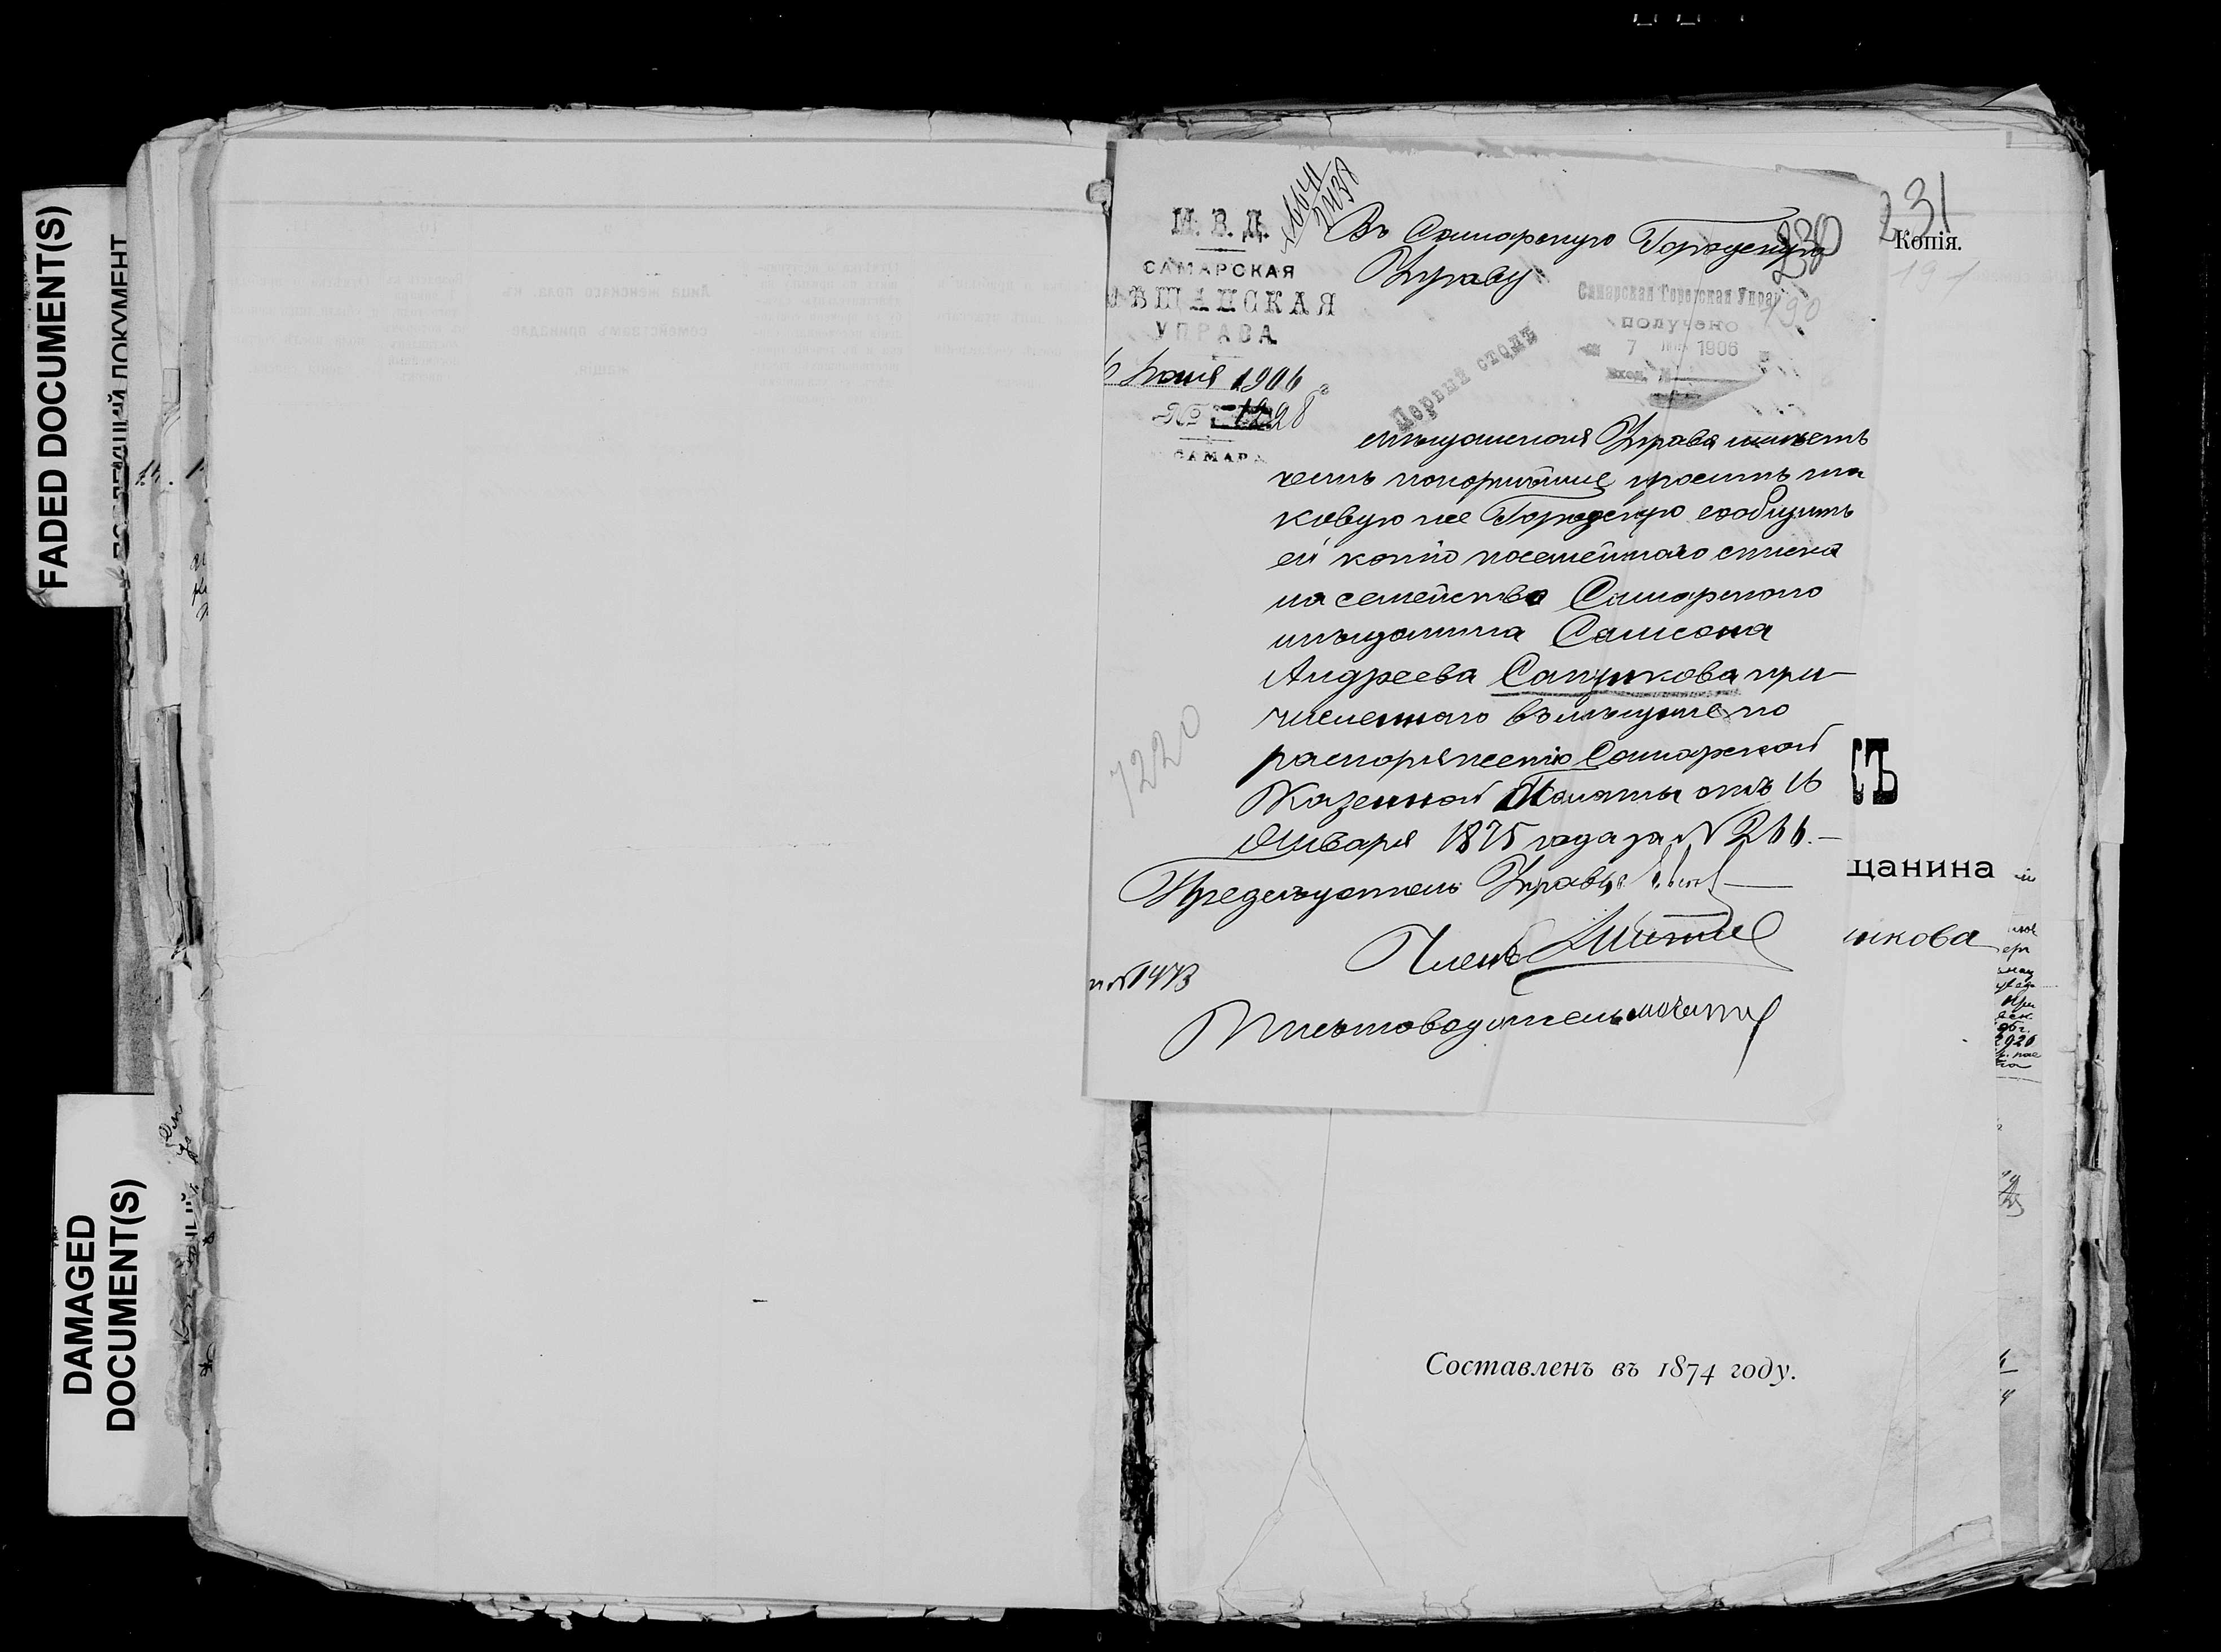 FADED DOCUMENT(S)
DAMAGED
DOCUMENT(S)
М. В. Д.
САМАРСКАЯ
МѢЩАНСКАЯ
УПРАВА
6 Іюня 1906 г
№ 1228
САМАРА
Въ Самарскую Городскую
Управу
230
190
231
Копія.
191
Самарская Городская Управа
получено
7 1906
Вход. №
Первый столъ
Мѣщанская Управа имѣетъ
честь покорнѣйше просить та
ковую же Городскую сообщить
ей копію посемейнаго списка
на семейство Самарскаго
мѣщанина Самсона
Андреева Сапункова при-
численнаго въ мѣщане по
распоряженію Самарской
Казенной Палаты отъ 16
Января 1875 года за № 266.-
Предсѣдатель Управы
Членъ
Письмоводитель
№ 1473
7220
СЪ
щанина
нкова
Составленъ въ 1874 году.